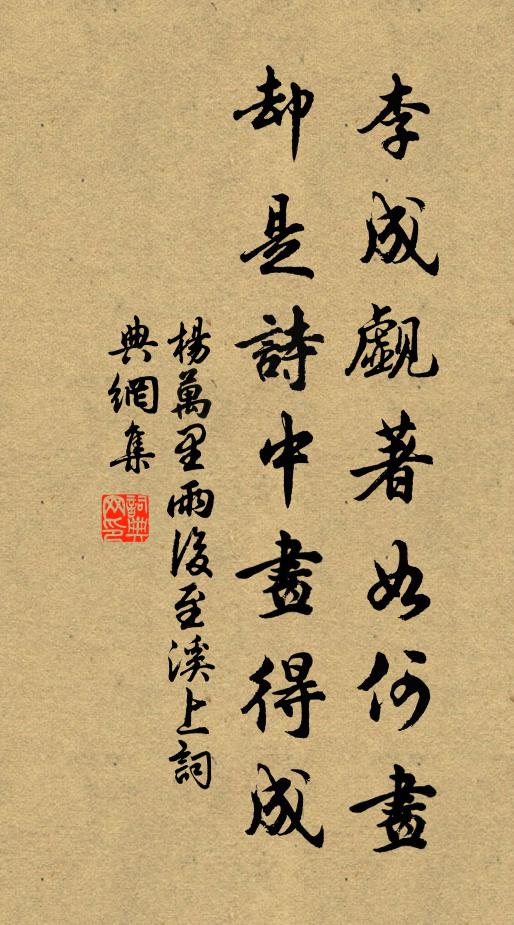 李成覷著如何畫
却是詩中畫得成
楊萬里雨後至溪上詞
典網集
詞典網印